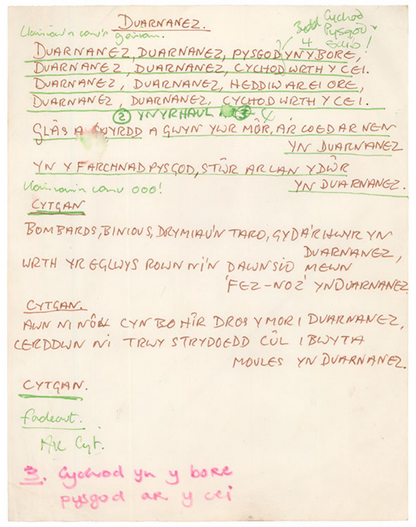 DUARNANEZ.
Bell Cychod
Pysgod
4
DUARNANEZ, DUARNANEZ, PYSGOD YN Y BORE,
DUARNANEZ, DUARNANEZ, CYCHOD WRTH Y CEI.
DUARNANEZ, DUARNANEZ, HEDDIW AR EI ORE,
DUARNANEZ, DUARNANEZ, CYCHOD WRTH Y CEI.
② YN YR HAUL
GLÂS A GWYRDD A GWYN YW'R MÔR, A'R COED AR NEN
YN DUARNANEZ
YN Y FARCHNAD PYSGOD, STŴR AR LAN Y DŴR
YN DUARNANEZ.
canu ooo!
CYTGAN
BOMBARDS, BINIOUS, DRYMIAU'N TARO, GYDA'R HWYR YN
DUARNANEZ,
WRTH YR EGLWYS ROWN NI'N DAWNSIO MEWN
'FEZ-NOZ' YN DUARNANEZ
CYTGAN.
AWN NI NÔL CYN BO HÎR DROS Y MOR I DUARNANEZ,
CERDDWN NI TRWY STRYDOEDD CÛL I BWYTA
MOULES YN DUARNANEZ.
CYTGAN.
fadeout.
Ail Cyt.
3. Cychod yn y bore
pysgod ar y cei